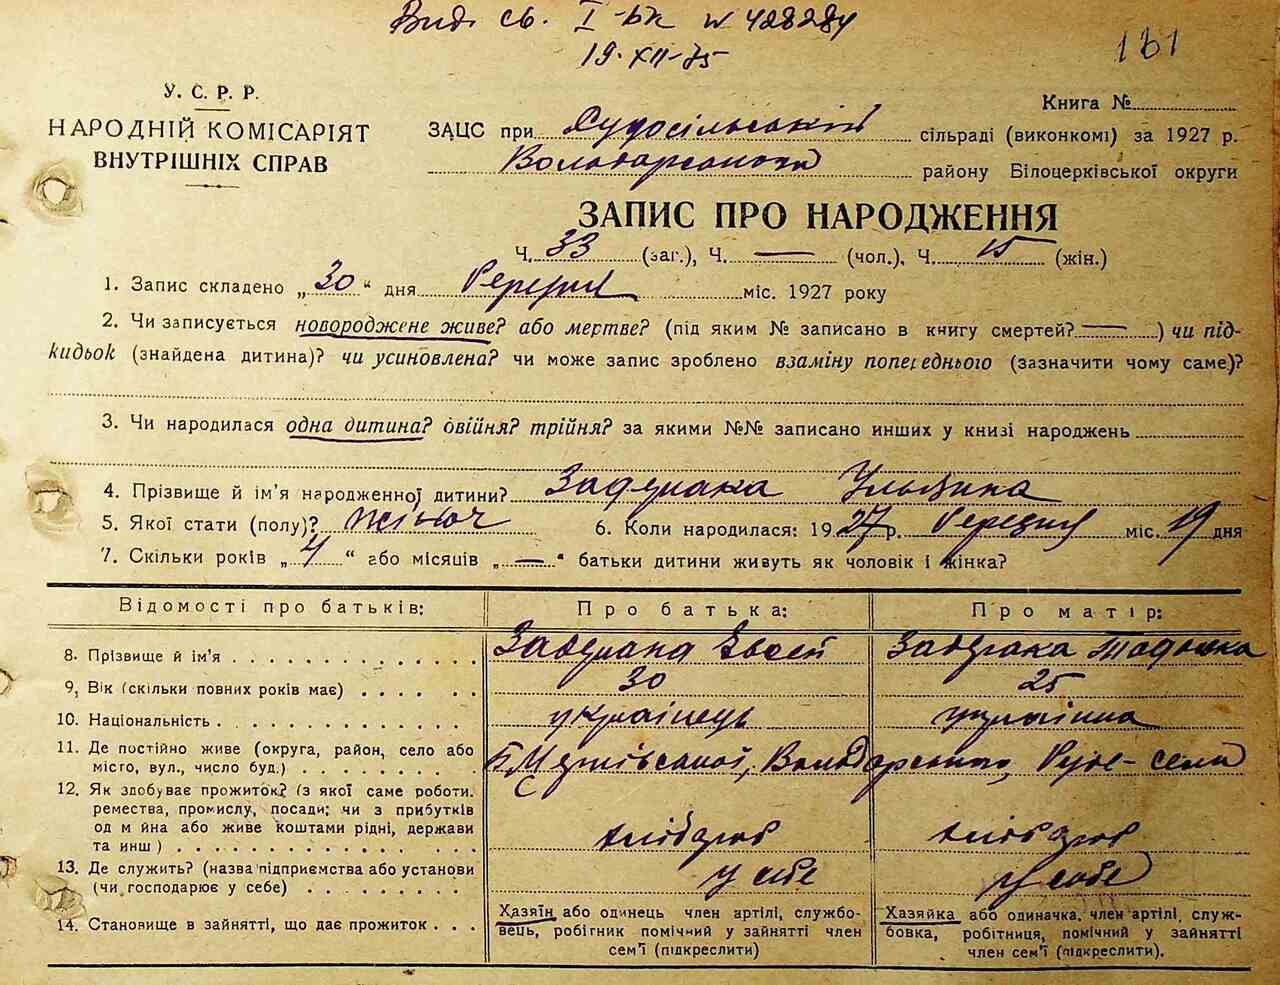 Вид. св. І-БК № 428284
19.XII-75
161
У. С. Р. Р.
НАРОДНІЙ КОМІСАРІЯТ
ВНУТРІШНІХ СПРАВ
Книга №
ЗАЦС при сільраді (виконкомі) за 1927 р.
району Білоцерківської округи
ЗАПИС ПРО НАРОДЖЕННЯ
Ч. 33 (заг.), Ч. — (чол.), Ч. 15 (жін.)
1. Запис складено „30“ дня Березня міс. 1927 року
2. Чи записується новороджене живе? або мертве? (під яким № записано в книгу смертей? — ) чи під-
кидьок (знайдена дитина)? чи усиновлена? чи може запис зроблено взаміну попереднього (зазначити чому саме)?
3. Чи народилася одна дитина? двійня? трійня? за якими №№ записано инших у книзі народжень
4. Прізвище й ім'я народженної дитини?
5. Якої стати (полу)? жіноч 6. Коли народилася: 1927 р. Березня міс. 19 дня
7. Скільки років „4“ або місяців „—“ батьки дитини живуть як чоловік і жінка?
Відомості про батьків: Про батька: Про матір:
8. Прізвище й ім'я
9. Вік (скільки повних років має) 30 25
10. Національність українець українка
11. Де постійно живе (округа, район, село або
місто, вул., число буд.)
12. Як здобуває прожиток? (з якої саме роботи.
ремества, промислу, посади; чи з прибутків
од майна або живе коштами рідні, держави
та инш) хлібороб хлібороб
13. Де служить? (назва підприємства або установи
(чи господарює у себе) у себе у себе
14. Становище в зайнятті, що дає прожиток
Хазяїн або одинець член артілі, службо-
вець, робітник помічний у зайнятті член
сем'ї (підкреслити)
Хазяйка або одиначка, член артілі, служ-
бовка, робітниця, помічний у зайнятті
член сем'ї (підкреслити).